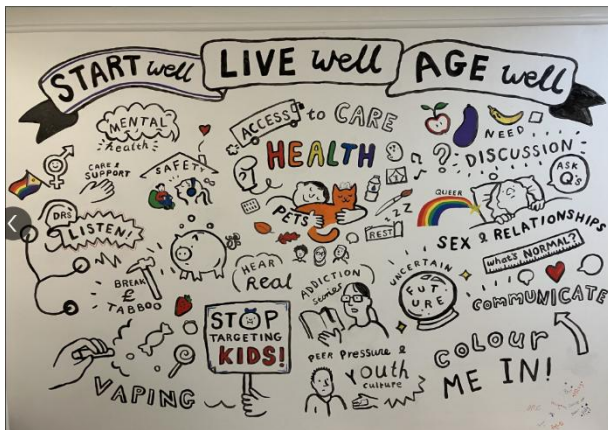 START well LIVE well AGE well
MENTAL
health
CARE &
SUPPORT
SAFETY
DRS
LISTEN!
BREAK
£
TABBOO
VAPING
ACCESS to CARE
HEALTH
PETS
zzz
REST
HEAR
Real
ADDICTION
Stories
STOP
TARGETING
KIDS!
PEER PRESSURE &
Youth
culture
NEED
DISCUSSION
?
ASK
Q's
QUEER
SEX & RELATIONSHIPS
what's NORMAL?
COMMUNICATE
UNCERTAIN
FUT
URE
COLOUR
ME IN!